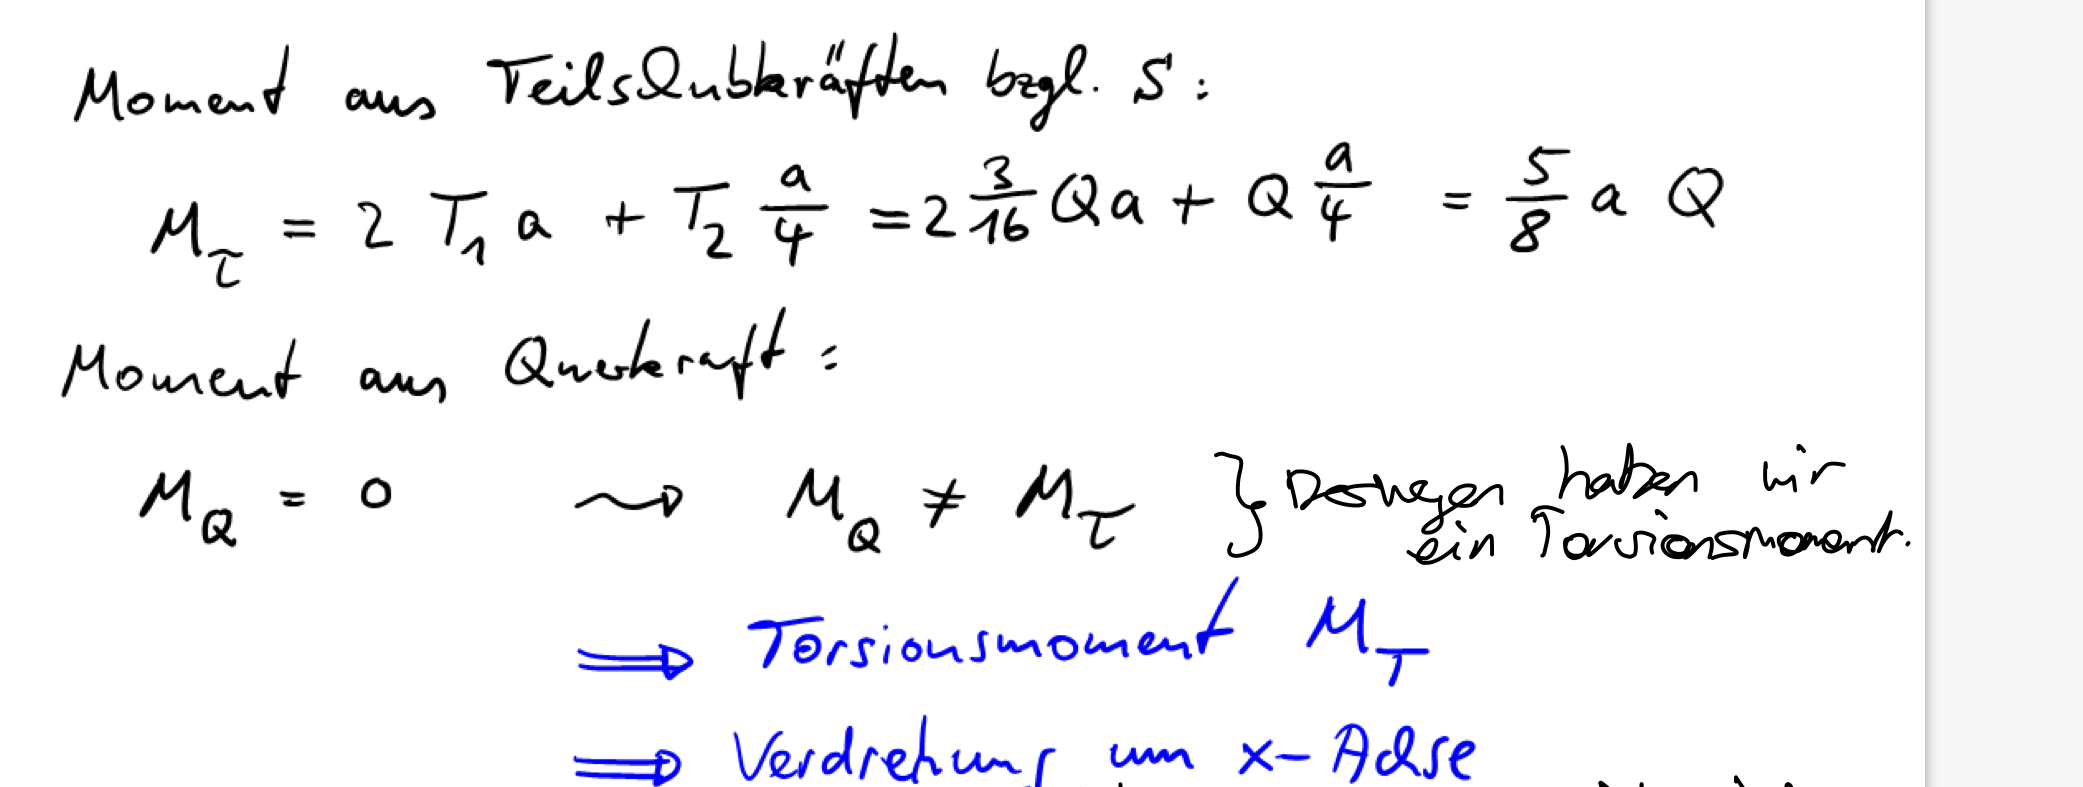 Moment aus Teilschubkräften bzgl. S:
M_τ = 2 T_1 a + T_2 a/4 = 2 3/16 Q a + Q a/4 = 5/8 a Q
Moment aus Querkraft:
M_Q = 0 ⇝ M_Q ≠ M_τ } Deswegen haben wir
ein Torsionsmoment.
⇒ Torsionsmoment M_T
⇒ Verdrehung um x-Achse